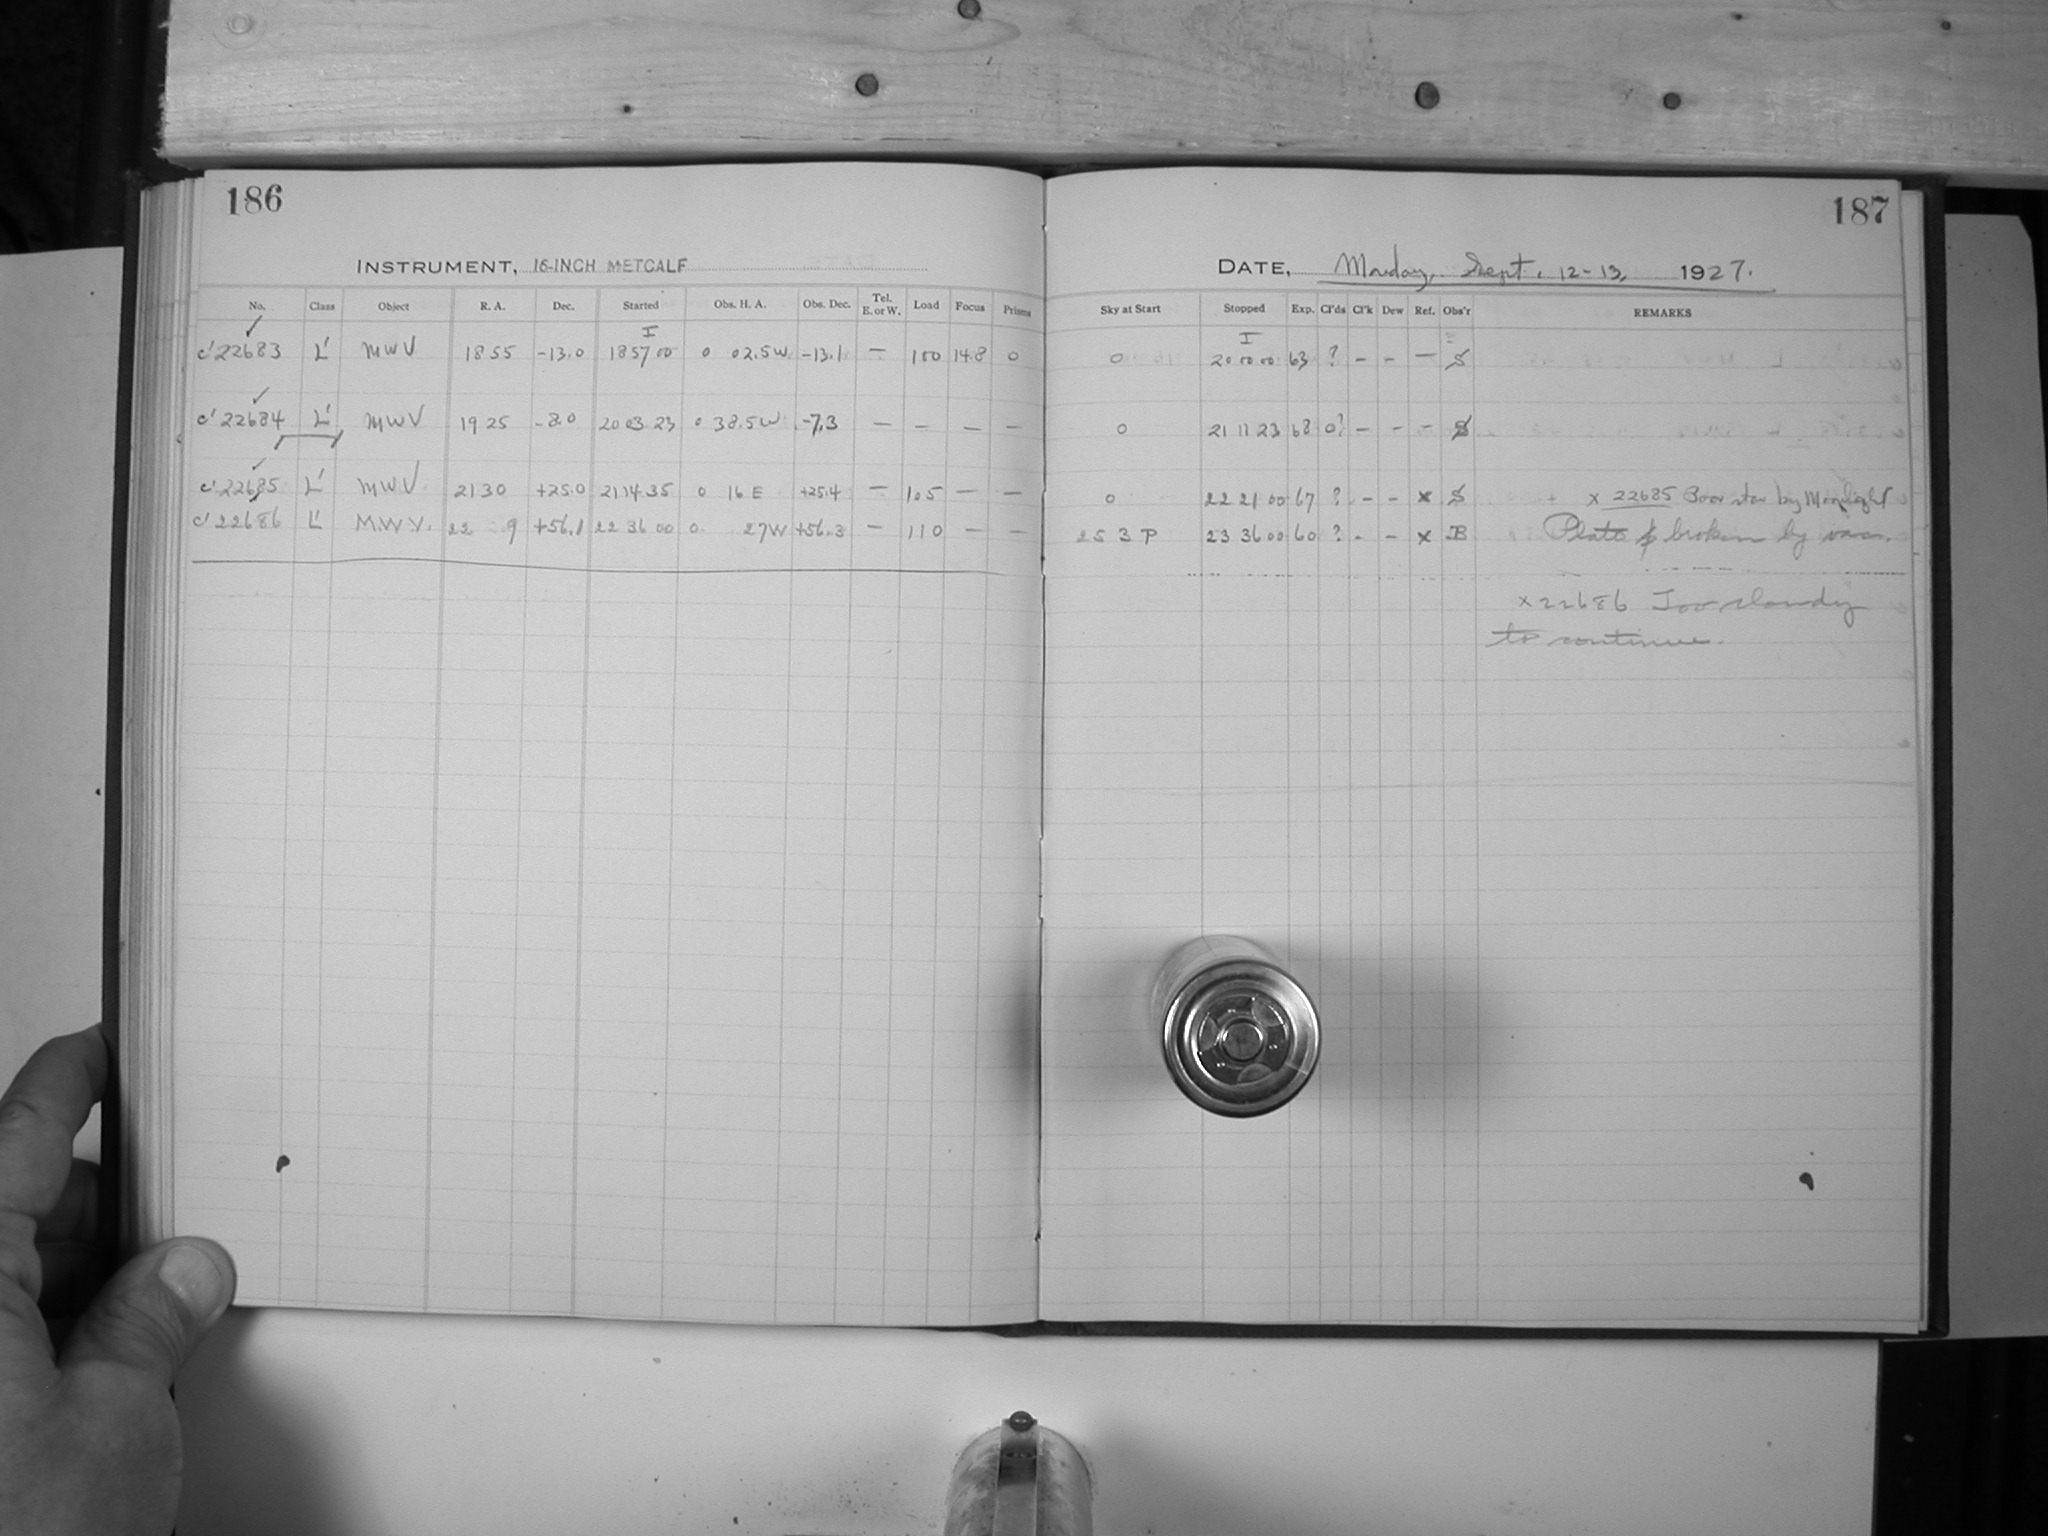 186
INSTRUMENT, 16-INCH METCALF
No. Class Object R. A. Dec. Started Obs. H. A. Obs. Dec. Tel. E. or W. Load Focus Prisms
I
c' 22683 L' MWV 18 55 -13.0 18 57 00 0 02.5W -13.1 — 100 14.8 0
c' 22684 L' MWV 19 25 -8.0 20 03 23 0 38.5W -7.3 — — — —
c' 22685 L' MWV 21 30 +25.0 21 14 35 0 16 E +25.4 — 105 — —
c' 22686 L' M.W.V. 22 9 +56.1 22 36 00 0 27W +56.3 — 110 — —
187
DATE, Monday, Sept. 12-13, 1927.
Sky at Start Stopped Exp. Cl'ds Cl'k Dew Ref. Obs'r REMARKS
I
0 20 00 00 63 ? — — — S
0 21 11 23 68 0? — — — S
0 22 21 00 67 ? — — x S x 22685 Poor star by Moonlight
25 3 P 23 36 00 60 ? — — x B Plate broken by
x 22686 Too cloudy
to continue.